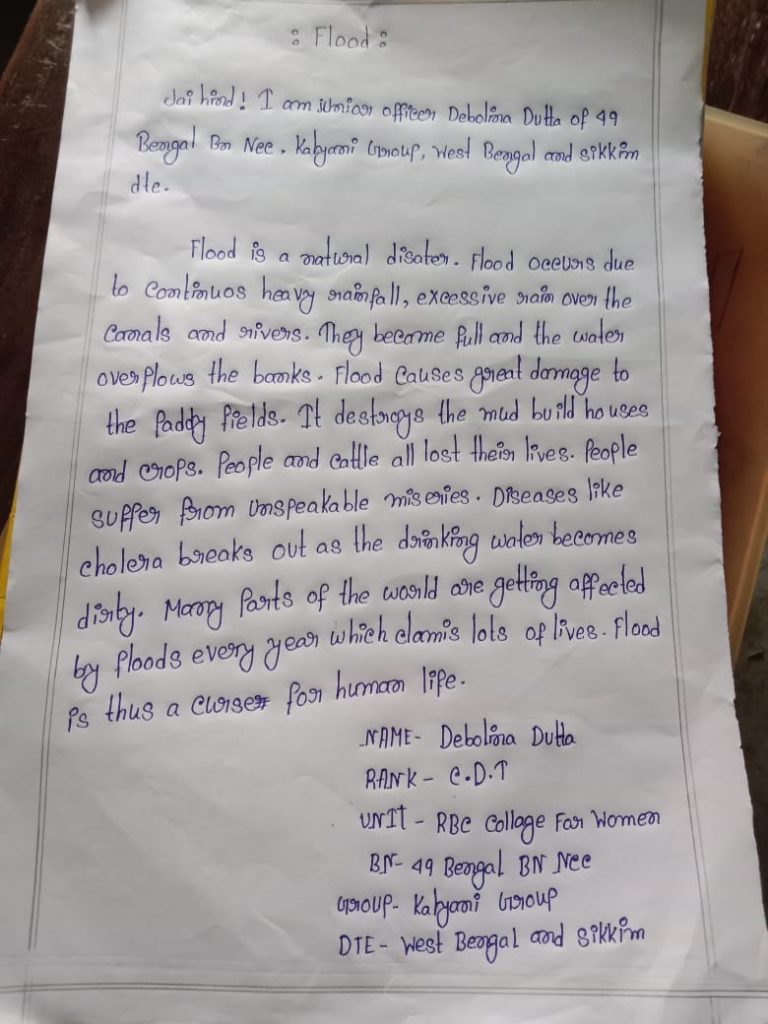 : Flood :
Jai hind! I am junior officer Debolina Dutta of 49
Bengal Bn Ncc. Kalyani Group, West Bengal and sikkim
dte.
Flood is a natural disoter. Flood occurs due
to continuos heavy rainfall, excessive rain over the
canals and rivers. They become full and the water
overflows the banks. Flood causes great damage to
the Paddy fields. It destroys the mud build houses
and crops. People and cattle all lost their lives. People
suffer from unspeakable miseries. Diseases like
cholera breaks out as the drinking water becomes
dirty. Many Parts of the world are getting affected
by floods every year which clamis lots of lives. Flood
is thus a curse for human life.
NAME- Debolina Dutta
RANK - C.D.T
UNIT - RBC Collage For Women
BN- 49 Bengal BN Ncc
Group- Kalyani Group
DTE - West Bengal and Sikkim